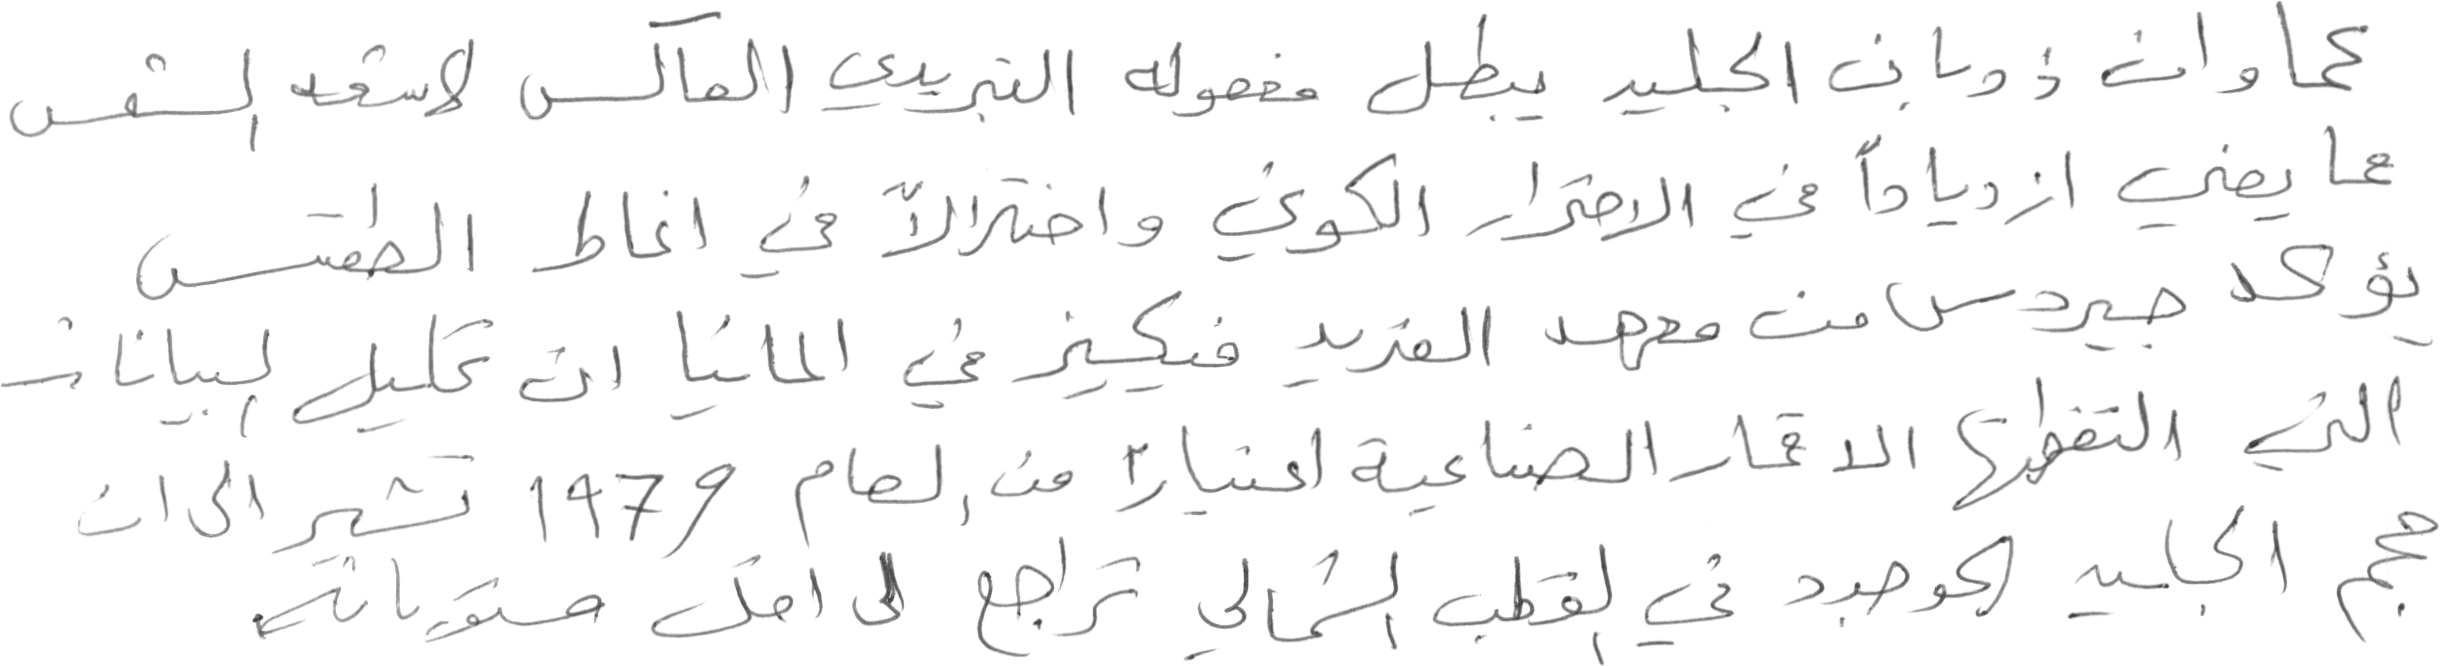 كما وان ذوبان الجليد يبطل مفعوله التبريدي العاكس لاشعة الشمس
ما يعني ازدياداً في الاحترار الكوني واختزالاً في انماط الطقس
يؤكد جيردس من معهد الفريد فيكينز في المانيا ان تحليل البيانات
التي التقطها الاقمار الصناعية اعتباراً من العام 1979 تشير الى ان
حجم الجليد الموجود في القطب الشمالي تراجع الى اقل مستوياته